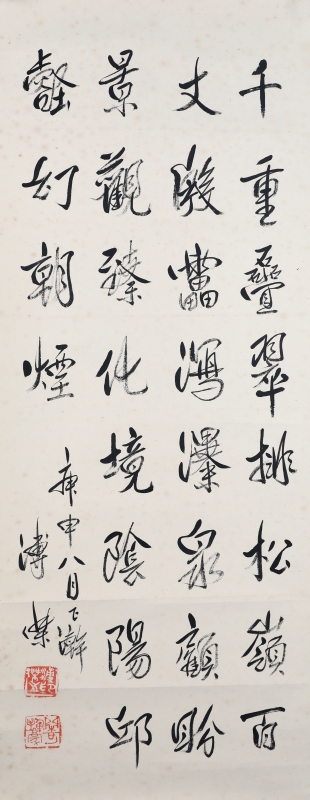 千重疊翠排松嶺百
丈激靁瀉瀑泉顧盼
景觀臻化境陰陽邱
壑幻朝煙
庚申八月下澣
溥傑